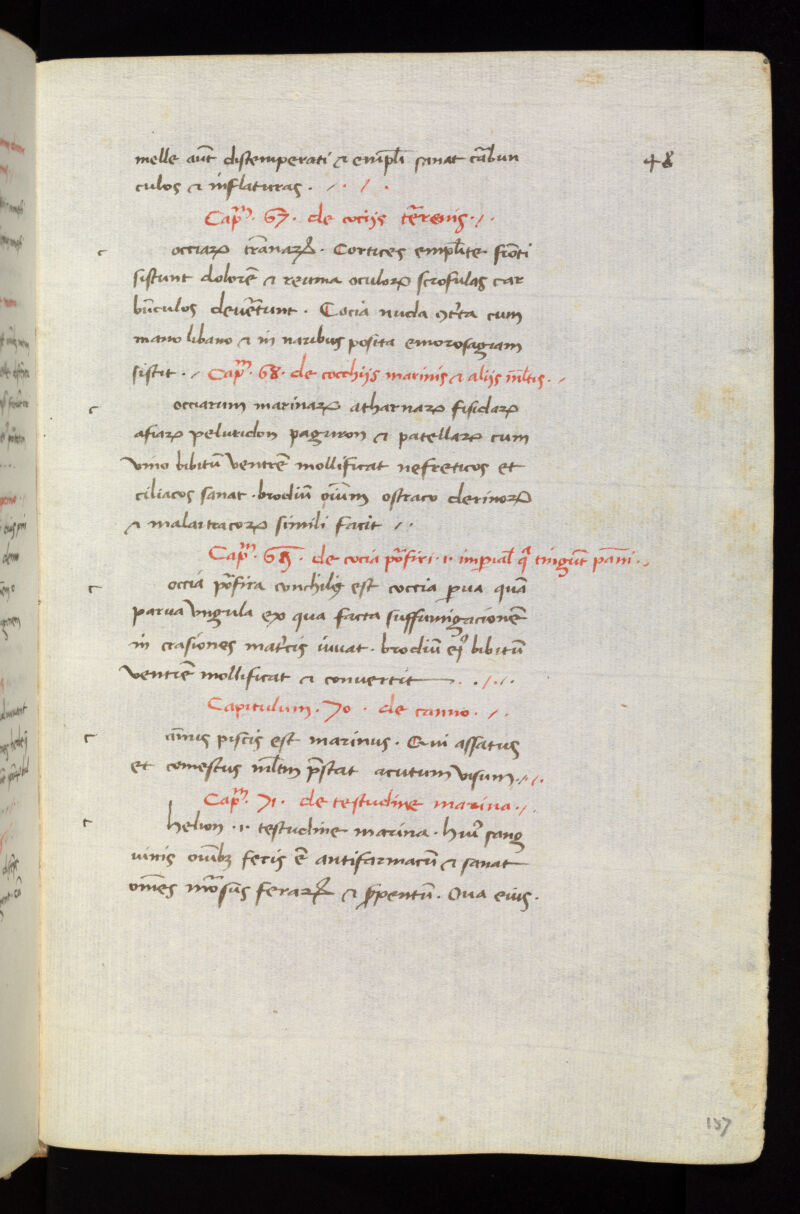 48
melle aut̄ distemperati & emp̄lī sanat cābun
culos & inflaturas .
Cap̄m . 67 . de cocijs t̄erenis .
c
occiaꝝ tr̄anaꝝ . Cortices emplīte fro͂ti
sistunt dolorē & reuma oculoꝝ scrofulas car
būculos deuertunt . Cocia nuda
cum
mano libano & in naribus posita emorosagiam
sistit . Cap̄m . 68 . de cocchijs marinis & alijs ml̄tis .
c
occiarum marinaꝝ atharnaꝝ fisidaꝝ
afiaꝝ peluridon paguron & patellaꝝ cum
vino bibitū ventrē mollificat nefreticos et
ciliacos sanat . brodiū oīum ostraco derinoꝝ
& malartracoꝝ simili facit
Cap̄m . 69 . de cocia porfiri . i . imperial' qa tingūt panni .
c
occia porfira conchilis est coccia parua quā
parua vngula ex qua facta suffumigacionē
in crasiones matricis iuuat . brodiū eiꝰ bibitū
ventrē mollificat & convertit
Capitulum . 70 . de canno .
c
annus piscis est marinus . Qui assatus
et comestus ml̄tm p̄stat acutum visum
Cap̄m . 71 . de testudine marina .
c
helion . i . testudine marina . huiꝰ sang
uinis oībꝫ feris ē antifarmacū & sanat
om̄es morsus feraꝝ & serpentū . Oua eius .
137